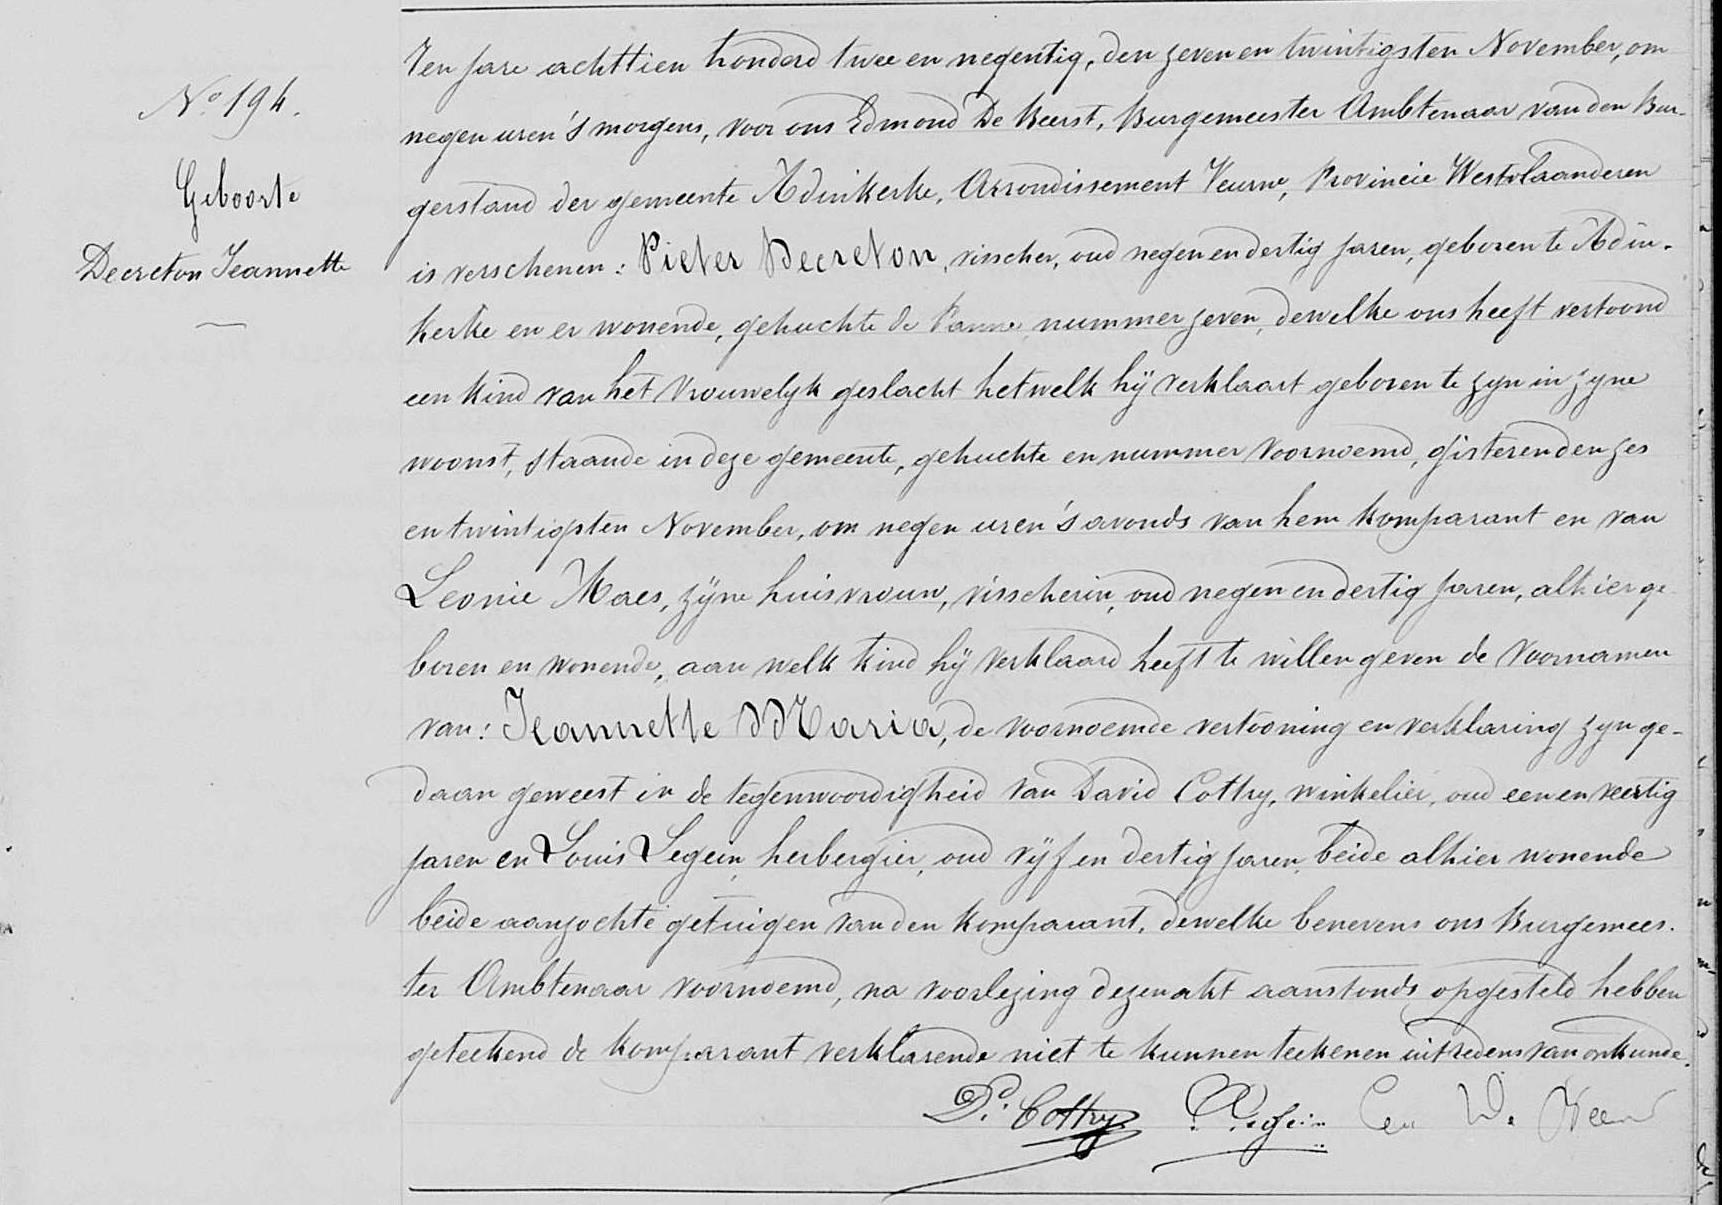 No 194.
Geboorte
Decreton Jeannette
Ten jare achttien honderd twee en negentig, den zeven en twintigsten November, om
negen uren 's morgens, voor ons Edmond De Beerst, Burgemeester Ambtenaar van den Bur-
gerstand der gemeente Adinkerke, Arrondissement Veurne, Provincie Westvlaanderen
is verschenen: Pieter Decreton, visscher, oud negen en dertig jaren, geboren te Adin-
kerke en er wonende, gehuchte de Panne, nummer zeven, dewelke ons heeft vertoond
een kind van het vrouwelyk geslacht hetwelk hij verklaart geboren te zyn in zyne
woonst, staande in deze gemeente, gehuchte en nummer voornoemd, gisteren den zes
en twintigsten November, om negen uren 's avonds van hem komparant en van
Leonie Maes, zijne huisvrouw, visscherin, oud negen en dertig jaren, alhier ge
boren en wonende, aan welk kind hij verklaard heeft te willen geven de voornamen
van: Jeannette Maria, de voornoemde vertooning en verklaring zyn ge-
daan geweest in de tegenwoordigheid van David Cottry, winkelier, oud een en veertig
jaren en Louis Legein, herbergier, oud vijf en dertig jaren, beide alhier wonende
beide aanzochte getuigen van den komparant, dewelke benevens ons Burgemees-
ter Ambtenaar voornoemd, na voorlezing dezen akt aanstonds opgesteld hebben
geteekend de komparant verklarende niet te kunnen teekenen uit redens van onkunde.
Dd. Cottry L. Legein